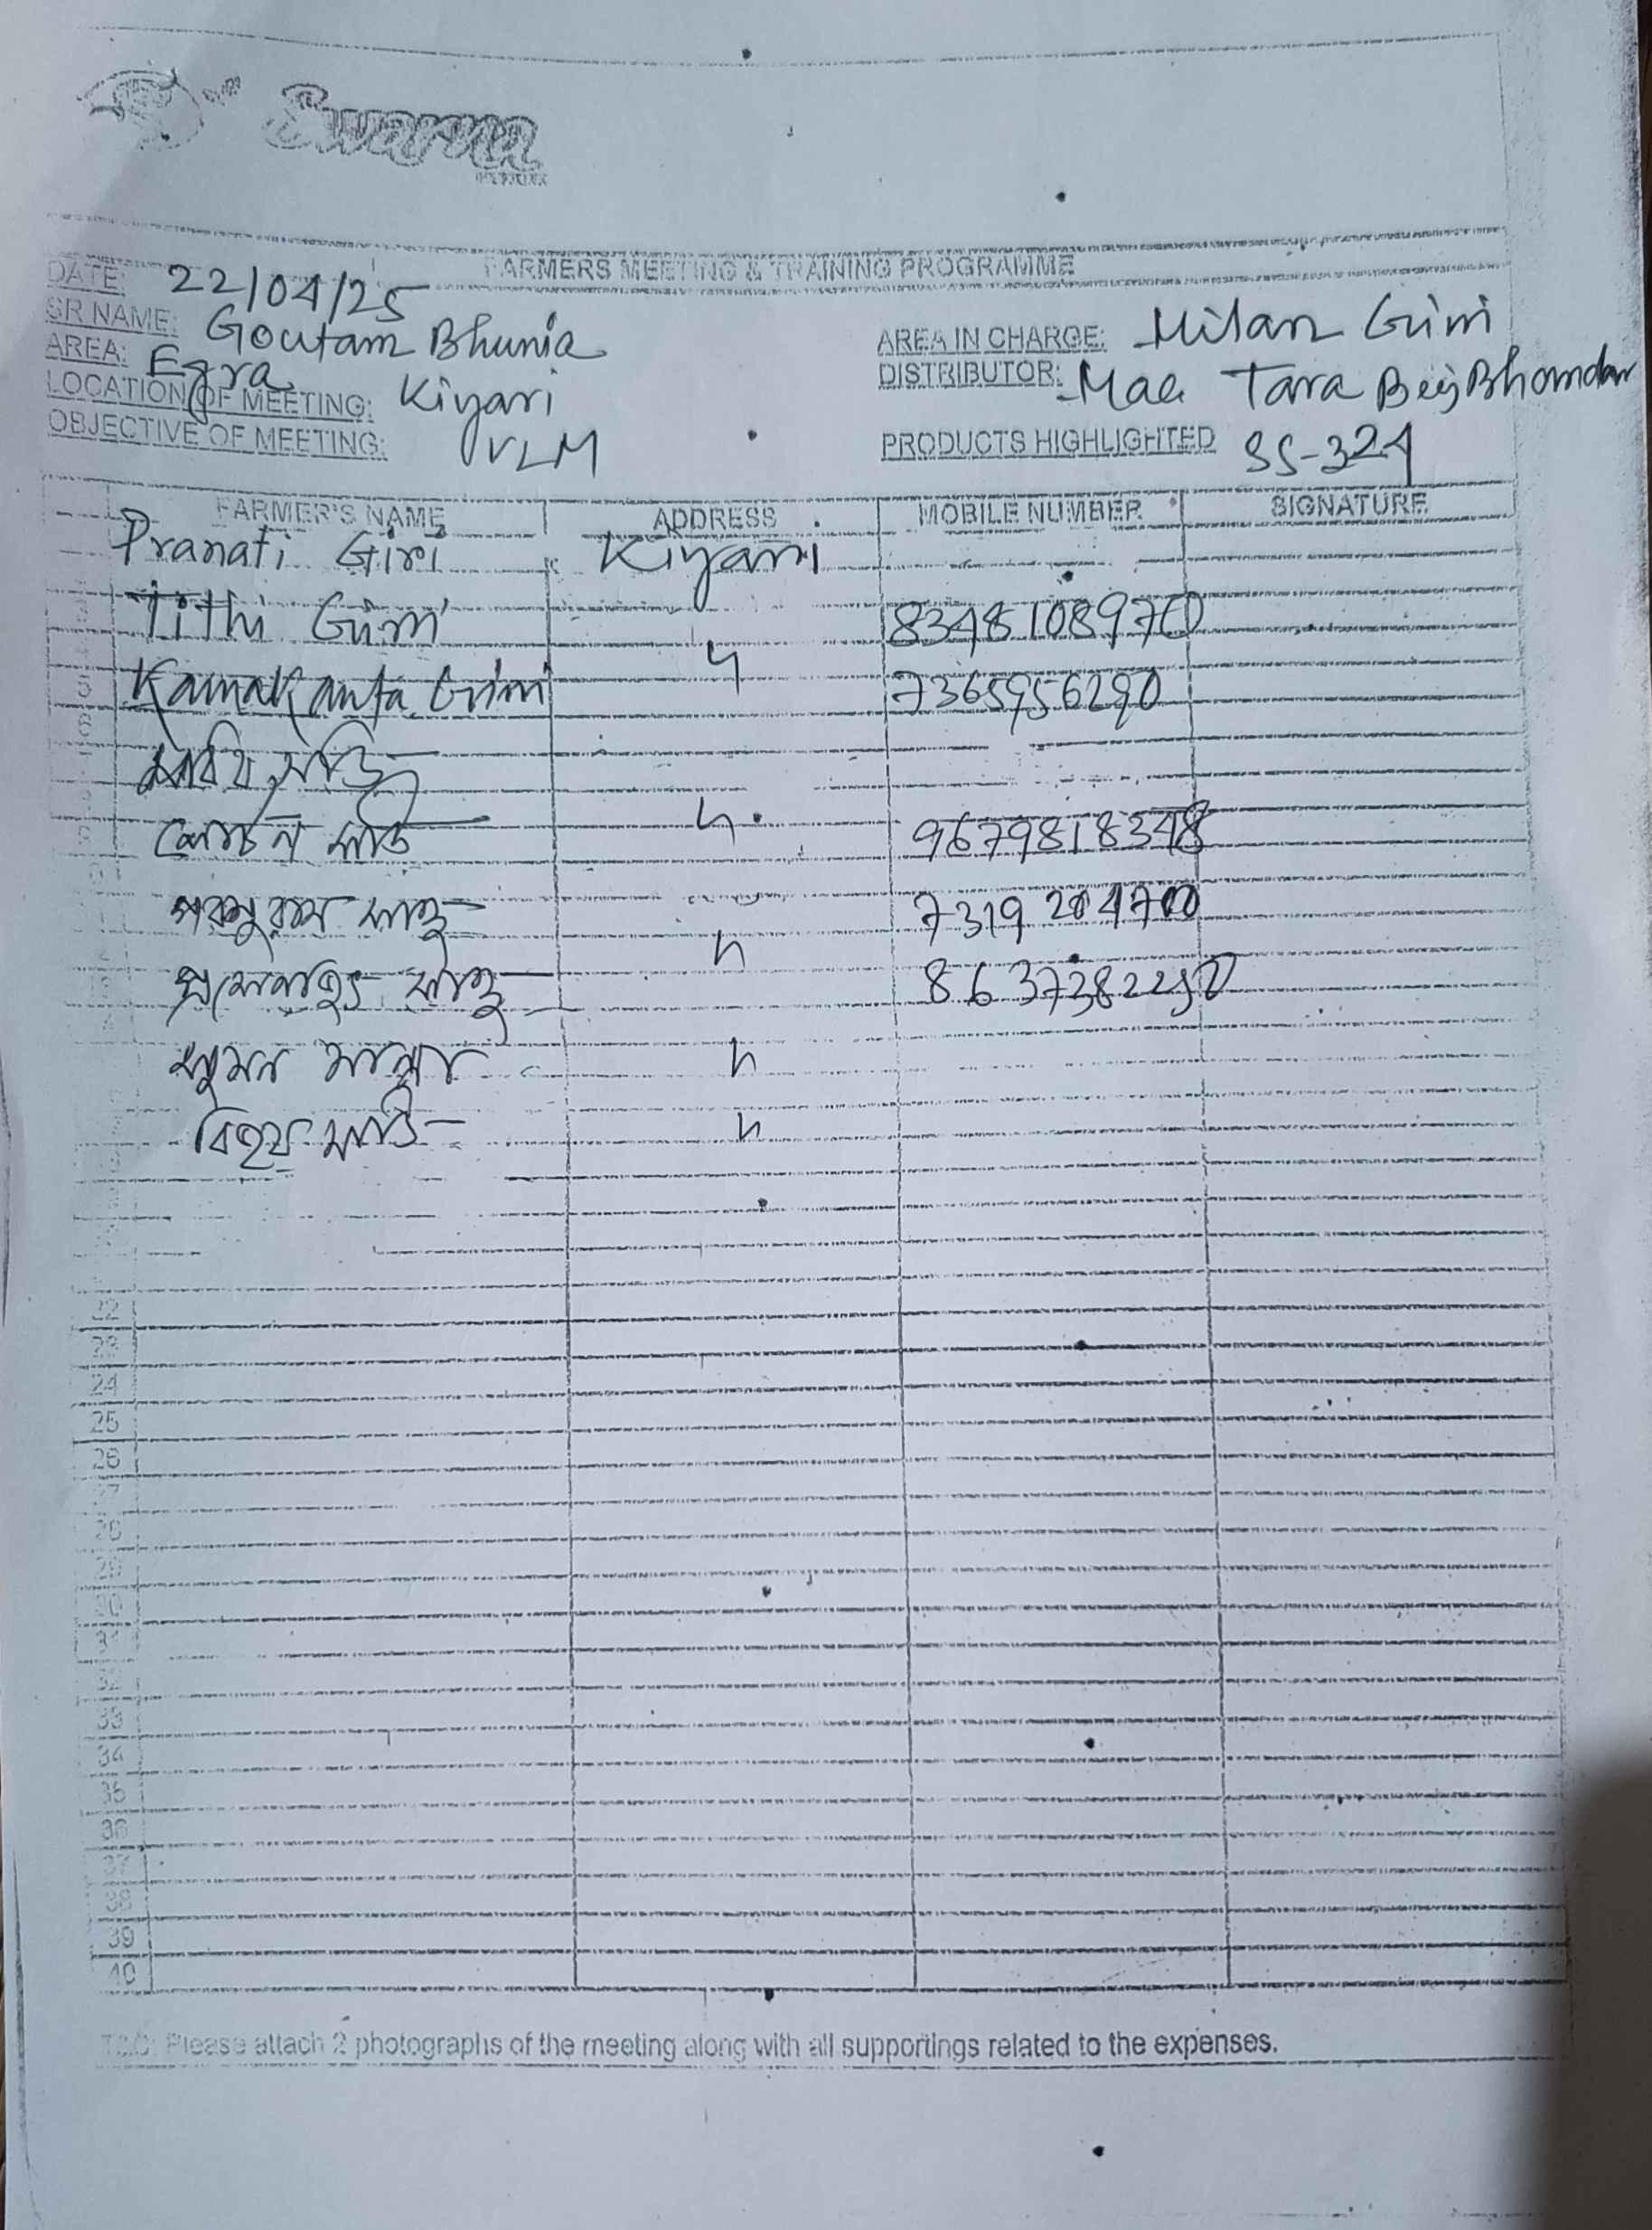 Swarna
FARMERS MEETING & TRAINING PROGRAMME
DATE: 22/04/25
SR NAME: Goutam Bhunia
AREA: Egra
LOCATION OF MEETING: Kiyari
OBJECTIVE OF MEETING: VLM
AREA IN CHARGE: Milan Giri
DISTRIBUTOR: Maa Tara Beej Bhandar
PRODUCTS HIGHLIGHTED SS-324
FARMER'S NAME ADDRESS MOBILE NUMBER SIGNATURE
Pranati Giri Kiyari
Tithi Giri 8348108970
Kamalkanta Giri 〃 7365956290
মাইতি
〃 9679818348
পরশুরাম সাহু 7319204700
সাহু 〃 8637382250
সুমন মান্না 〃
বিজয় 〃
22
23
24
25
26
27
28
29
30
31
32
33
34
35
36
37
38
39
40
Please attach 2 photographs of the meeting along with all supportings related to the expenses.